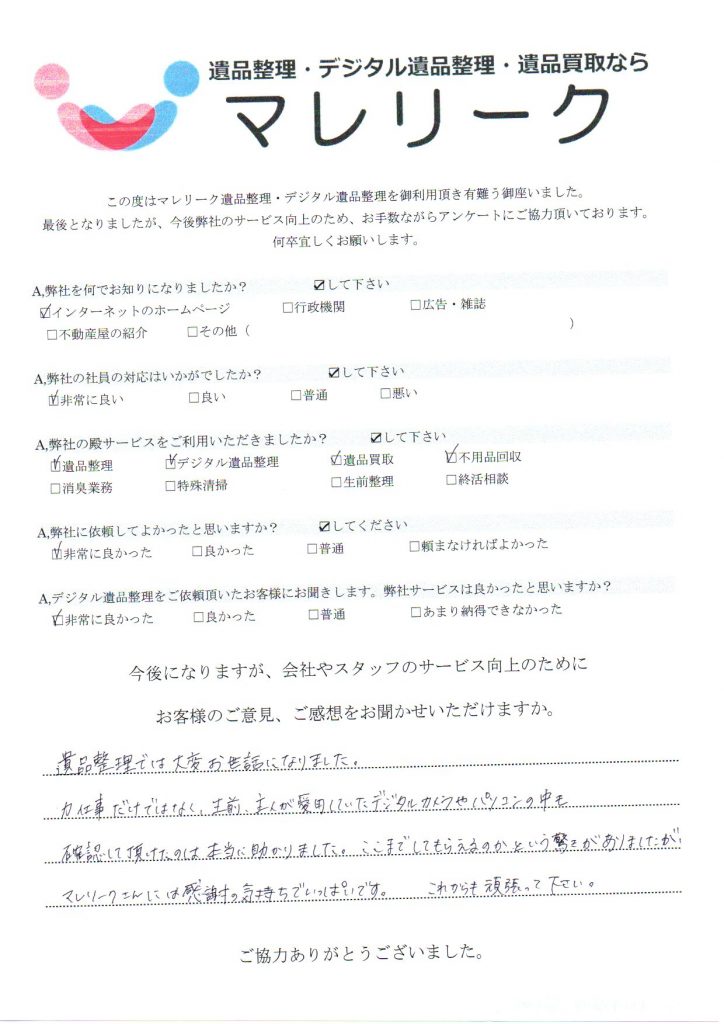 遺品整理・デジタル遺品整理・遺品買取なら
マレリーク
この度はマレリーク遺品整理・デジタル遺品整理を御利用頂き有難う御座いました。
最後となりましたが、今後弊社のサービス向上のため、お手数ながらアンケートにご協力頂いております。
何卒宜しくお願いします。
A,弊社を何でお知りになりましたか？ ☑して下さい
☑インターネットのホームページ □行政機関 □広告・雑誌
□不動産屋の紹介 □その他（ ）
A,弊社の社員の対応はいかがでしたか？ ☑して下さい
☑非常に良い □良い □普通 □悪い
A,弊社の殿サービスをご利用いただきましたか？ ☑して下さい
☑遺品整理 ☑デジタル遺品整理 ☑遺品買取 ☑不用品回収
□消臭業務 □特殊清掃 □生前整理 □終活相談
A,弊社に依頼してよかったと思いますか？ ☑してください
☑非常に良かった □良かった □普通 □頼まなければよかった
A,デジタル遺品整理をご依頼頂いたお客様にお聞きします。弊社サービスは良かったと思いますか？
☑非常に良かった □良かった □普通 □あまり納得できなかった
今後になりますが、会社やスタッフのサービス向上のために
お客様のご意見、ご感想をお聞かせいただけますか。
遺品整理では大変お世話になりました。
力仕事だけではなく、生前、主人が愛用していたデジタルカメラやパソコンの中も
確認して頂けたのは本当に助かりました。ここまでしてもらえるのかという驚きがありましたが
マレリークさんには感謝の気持ちでいっぱいです。 これからも頑張って下さい。
ご協力ありがとうございました。